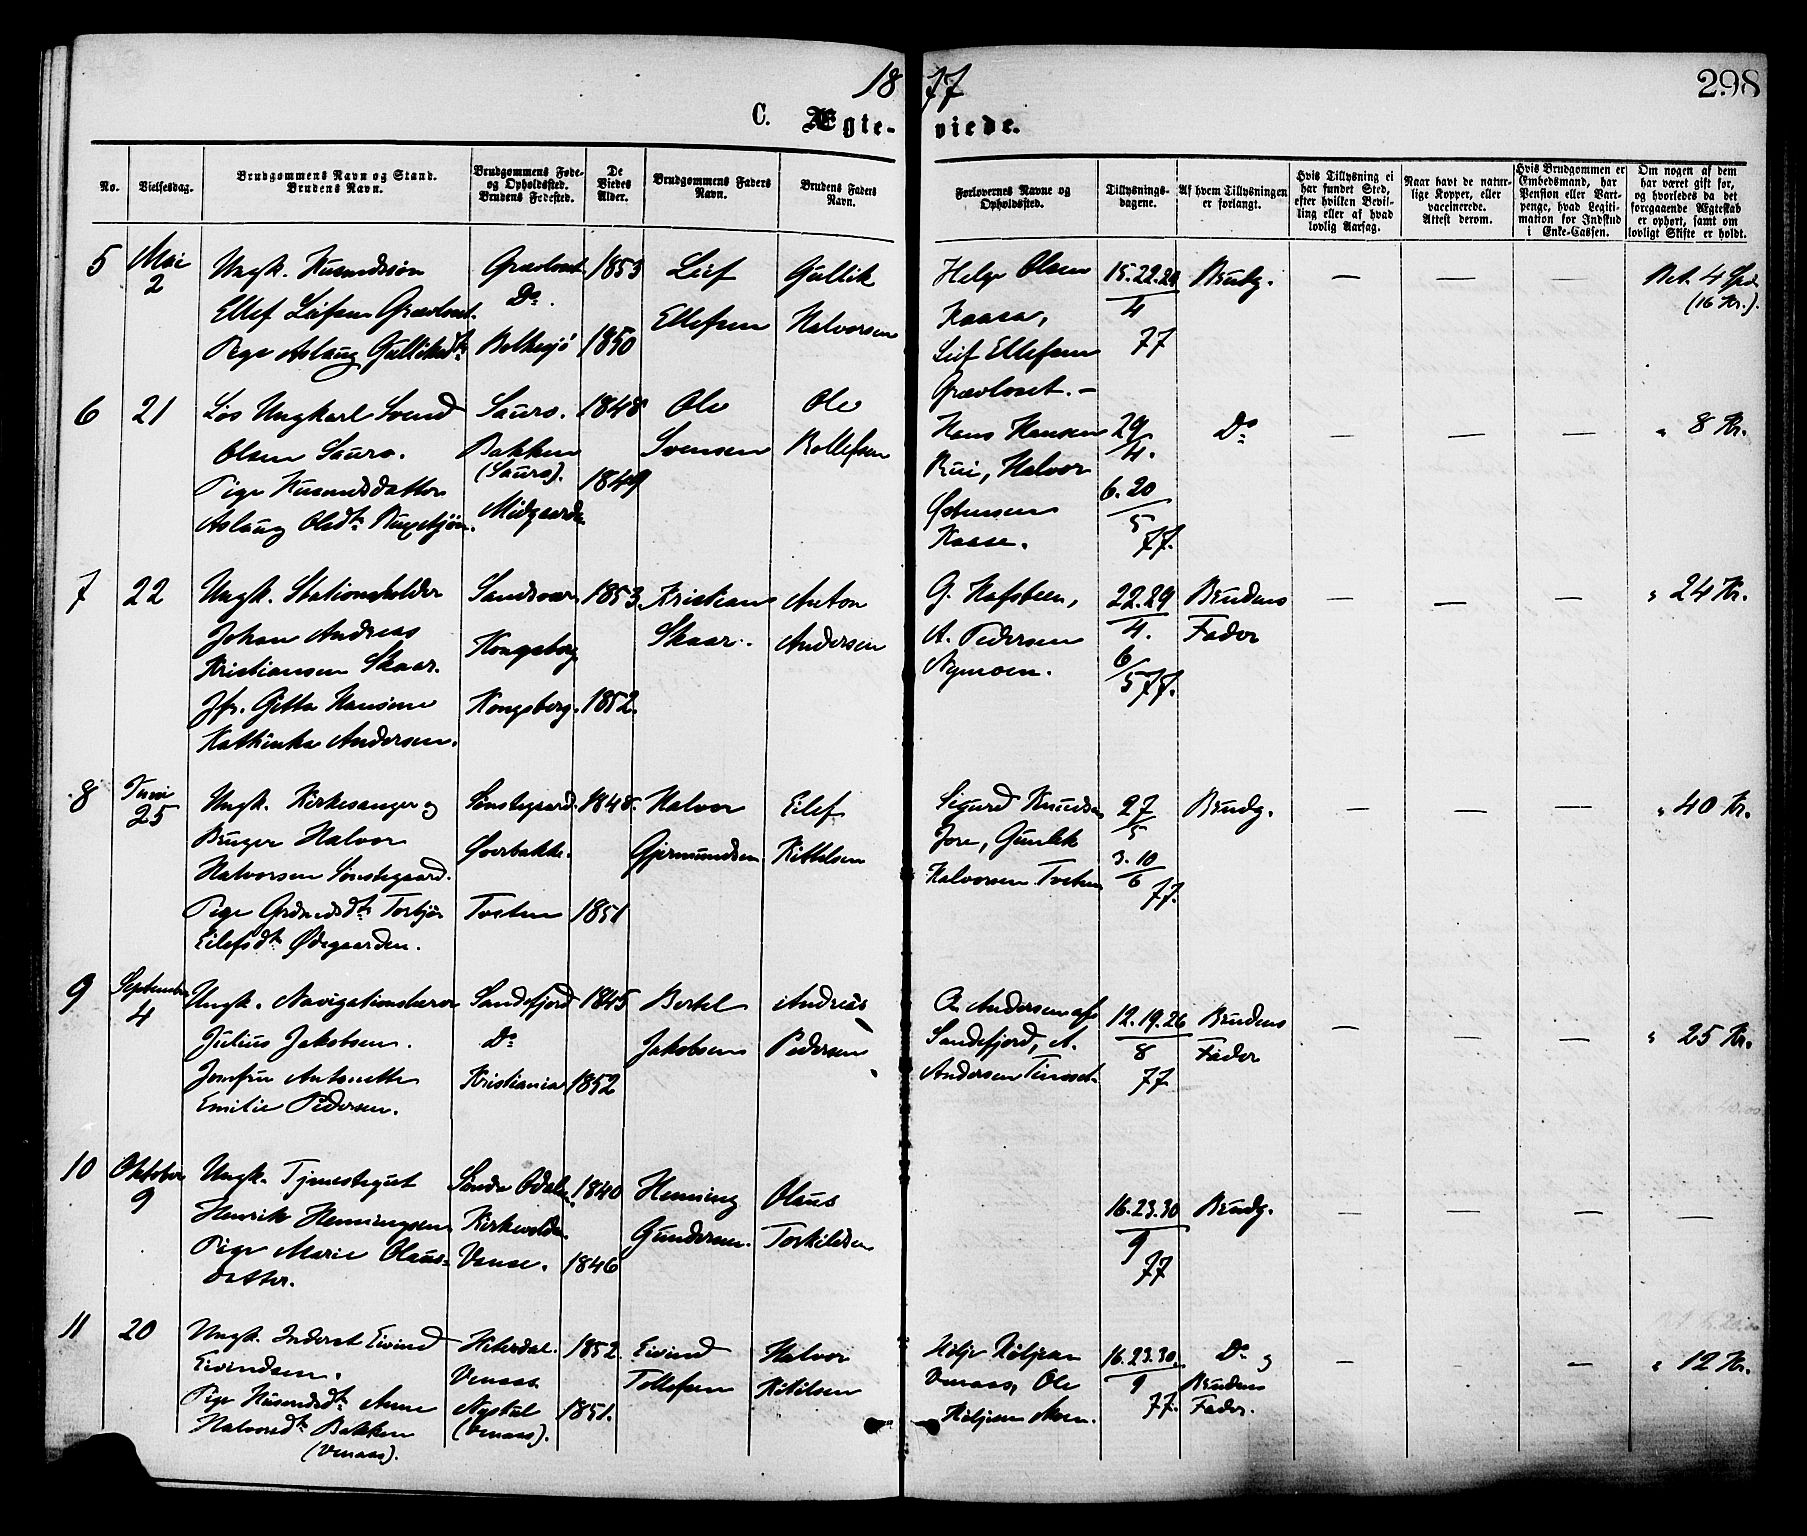 1877
298
C. Ægteviede.
No.
Vielsesdag.
Brudgommens Navn og Stand.
Brudens Navn.
Brudgommens Føde-
og Opholdssted.
Brudens Fødested.
De
Viedes
Alder.
Brudgommens Faders
Navn.
Brudens Faders
Navn.
Forlovernes Navne og
Opholdssted.
Tillysnings-
dagene.
Af hvem Tillysningen
er forlangt.
Hvis Tillysning ei
har fundet Sted,
efter hvilken Bevil-
ling eller af hvad
lovlig Aarsag.
Naar havt de natur-
lige Kopper, eller
vaccinerede.
Attest derom.
Hvis Brudgommen er
Embedsmand, har
Pension eller Vart-
penge, hvad Legiti-
mation for Indskud
i Enke-Cassen.
Om nogen af dem
har været gift før,
og hvorledes da det
foregaaende Ægteskab
er ophørt, samt om
lovligt Skifte er holdt.
5 Mai 2
Ungk. Husmandssøn
Ellef Leifsen Gravloset.
Pige Aslaug Gulliksdt.
Gravloset
Do.
Bolkesjø
1853
1850
Leif
Ellefsen
Gullik
Halvorsen
Helge Olsen
Kaasa,
Leif Ellefsen
Gravloset.
15.22.29
4
77
Brudg.
— — —
Bet. 4 Spd.
(16 Kr.).
6 21
Løs Ungkarl Svend
Olsen Sauro.
Pige Husmdsdatter
Aslaug Olsdt.
Sauro.
Bakken
(Sauro).
Midgaarden
1848
1849
Ole
Svensen
Ole
Rollefsen
Hans Hansen
Rui, Halvor
Østensen
Kaase.
29/4.
6.20
5
77.
Do
— — —
„ 8 Kr.
7 22
Ungk. Stationsholder
Johan Andreas
Kristiansen Skaar.
Jfr. Gitta Hansine
Kathinka Andersen.
Sandsvær
Kongsberg
Kongsberg.
1853.
1852.
Kristian
Skaar.
Anton
Andersen
G. Hafsteen,
A. Pedersen
Nymoen.
22.29
4.
6/5 77.
Brudens
Fader
— — —
„ 24 Kr.
8 Juni 25
Ungk. Kirkesanger og
Bruger Halvor
Halvorsen Sønstegaard.
Pige Grdmdsdt. Torbjør
Eilefsdt. Ødegaarden.
Sønstegaard.
Øverbakke.
Tveten
1848.
1851
Halvor
Gjermundsen
Eilef
Kittelsen
Sigurd Knudsen
Jore, Gunlek
Halvorsen Tveten
27/5
3.10
6
77.
Brudg.
— — —
„ 40 Kr.
9 September 4
Ungk. Navigationslærer
Julius Jakobsen.
Jomfru Antonette
Emilie Pedersen.
Sandefjord
Do
Kristiania
1845
1852
Bertel
Jakobsen
Andreas
Pedersen
O. Andersen af
Sandefjord, A.
Andersen Tinoset.
12.19.26
8
77
Brudens
Fader
— — —
„ 25 Kr.
10 Oktober 9
Ungk. Tjenestegut
Henrik Henningsen
Pige Marie Olaus-
datter.
Søndre Odalen.
Kirkevolden
Vense.
1840
1846
Henning
Gundersen.
Olaus
Torkildsen
16.23.30
9
77
Brudg.
— — — —
11 20
Ungk. Inderst Eivind
Eivindsen.
Pige Husmdsdt. Anne
Halvorsdt. Bakken
(Venaas).
Hiterdal.
Venaas
Nystul
(Venaas).
1852.
1851.
Eivind
Tollefsen
Halvor
Kittilsen
Veljesen
Venaas, Ole
Moen.
16.23.30
9
77.
Do og
Brudens
Fader.
— — —
„ 12 Kr.